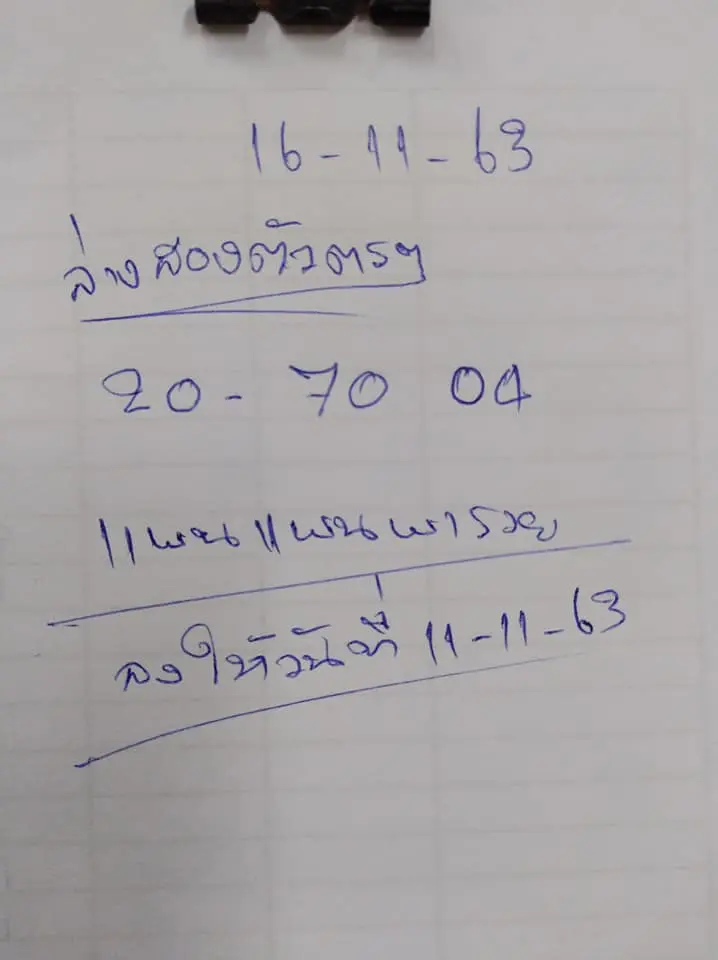 16-11-63
ล่างสองตัวตรงๆ
20- 70 04
แพนแพนพารวย
ลงให้วันที่ 11-11-63